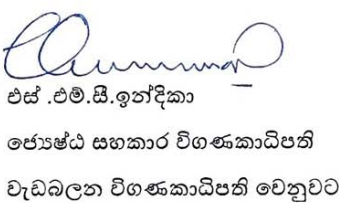 එස් .එම්.සී.ඉන්දිකා
ජ්‍යෙෂ්ඨ සහකාර විගණකාධිපති
වැඩබලන විගණකාධිපති වෙනුවට